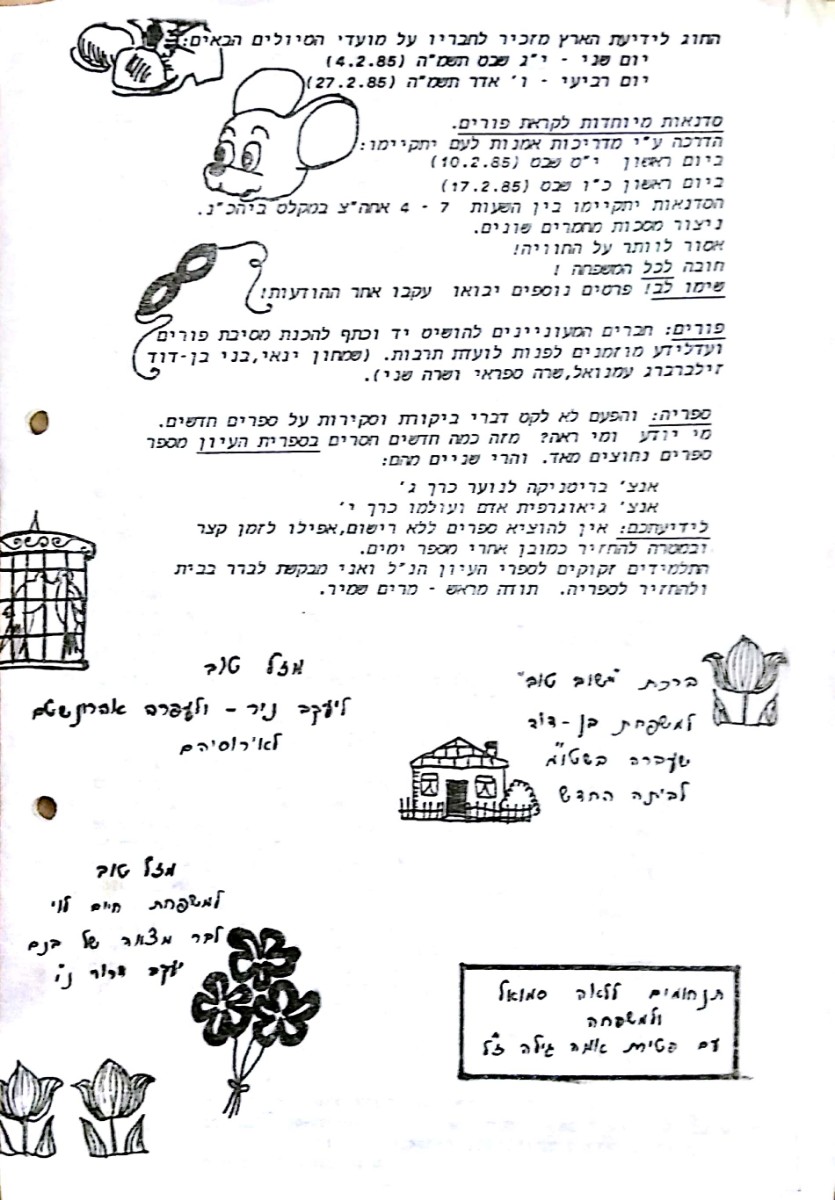 החוג לידיעת הארץ מזכיר לחבריו על מועדי הטיולים הבאים:
יום שני - י"ג שבט תשמ"ה (4.2.85)
יום רביעי - ו' אדר תשמ"ה (27.2.85)
סדנאות מיוחדות לקראת פורים.
הדרכה ע"י מדריכות אמנות לעם יתקיימו:
ביום ראשון י"ט שבט (10.2.85)
ביום ראשון כ"ו שבט (17.2.85)
הסדנאות יתקיימו בין השעות 7 - 4 אחה"צ במקלט ביהכ"נ.
ניצור מסכות מחמרים שונים.
אסור לוותר על החוויה!
חובה לכל המשפחה !
שימו לב! פרטים נוספים יבואו עקבו אחר ההודעות!
פורים: חברים המעוניינים להושיט יד וכתף להכנת מסיבת פורים
ועדלידע מוזמנים לפנות לועדת תרבות. (שמחון ינאי,בני בן-דוד
זילברברג עמנואל,שרה ספראי ושרה שני).
ספריה: והפעם לא לקט דברי ביקורת וסקירות על ספרים חדשים.
מי יודע ומי ראה? מזה כמה חדשים חסרים בספרית העיון מספר
ספרים נחוצים מאד. והרי שניים מהם:
אנצ' בריטניקה לנוער כרך ג'
אנצ' גיאוגרפית אדם ועולמו כרך י'
לידיעתכם: אין להוציא ספרים ללא רישום,אפילו לזמן קצר
ובמטרה להחזיר כמובן אחרי מספר ימים.
התלמידים זקוקים לספרי העיון הנ"ל ואני מבקשת לברר בבית
ולהחזיר לספריה. תודה מראש - מרים שמיר.
ברכת "משוב טוב"
למשפחת בן-דוד
שעברה בשטו"מ
לביתה החדש
מזל טוב
ליעקב ניר - ולעפרה אהרונשטם
לאירוסיהם
מזל טוב
למשפחת חיים לוי
לבר מצוה של בנם
יעקב דרור נ"י
תנחומים ללאה סמואל
ולמשפחה
עם פטירת אמה גילה ז"ל